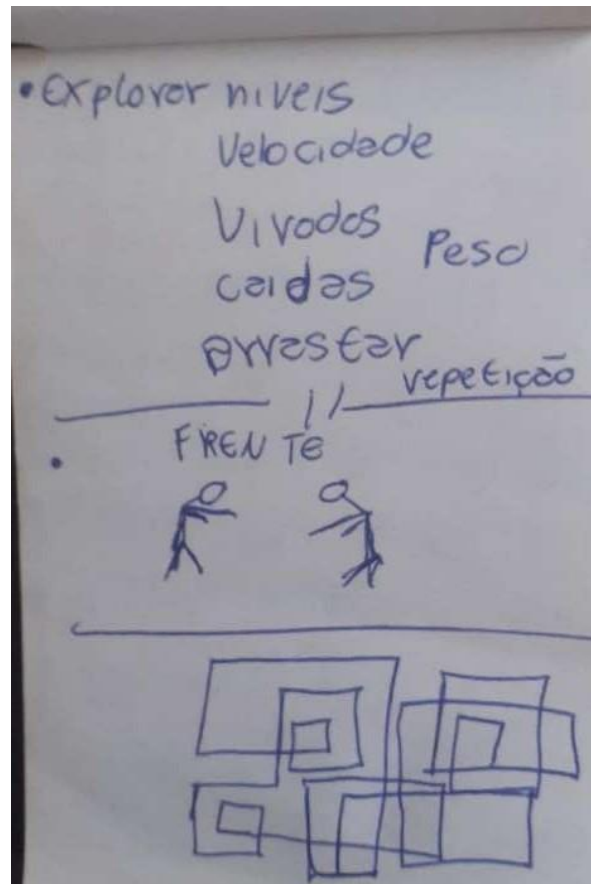 • Explorar niveis
Velocidade
Virados
Peso
caidas
arrastar
repetição
• FRENTE